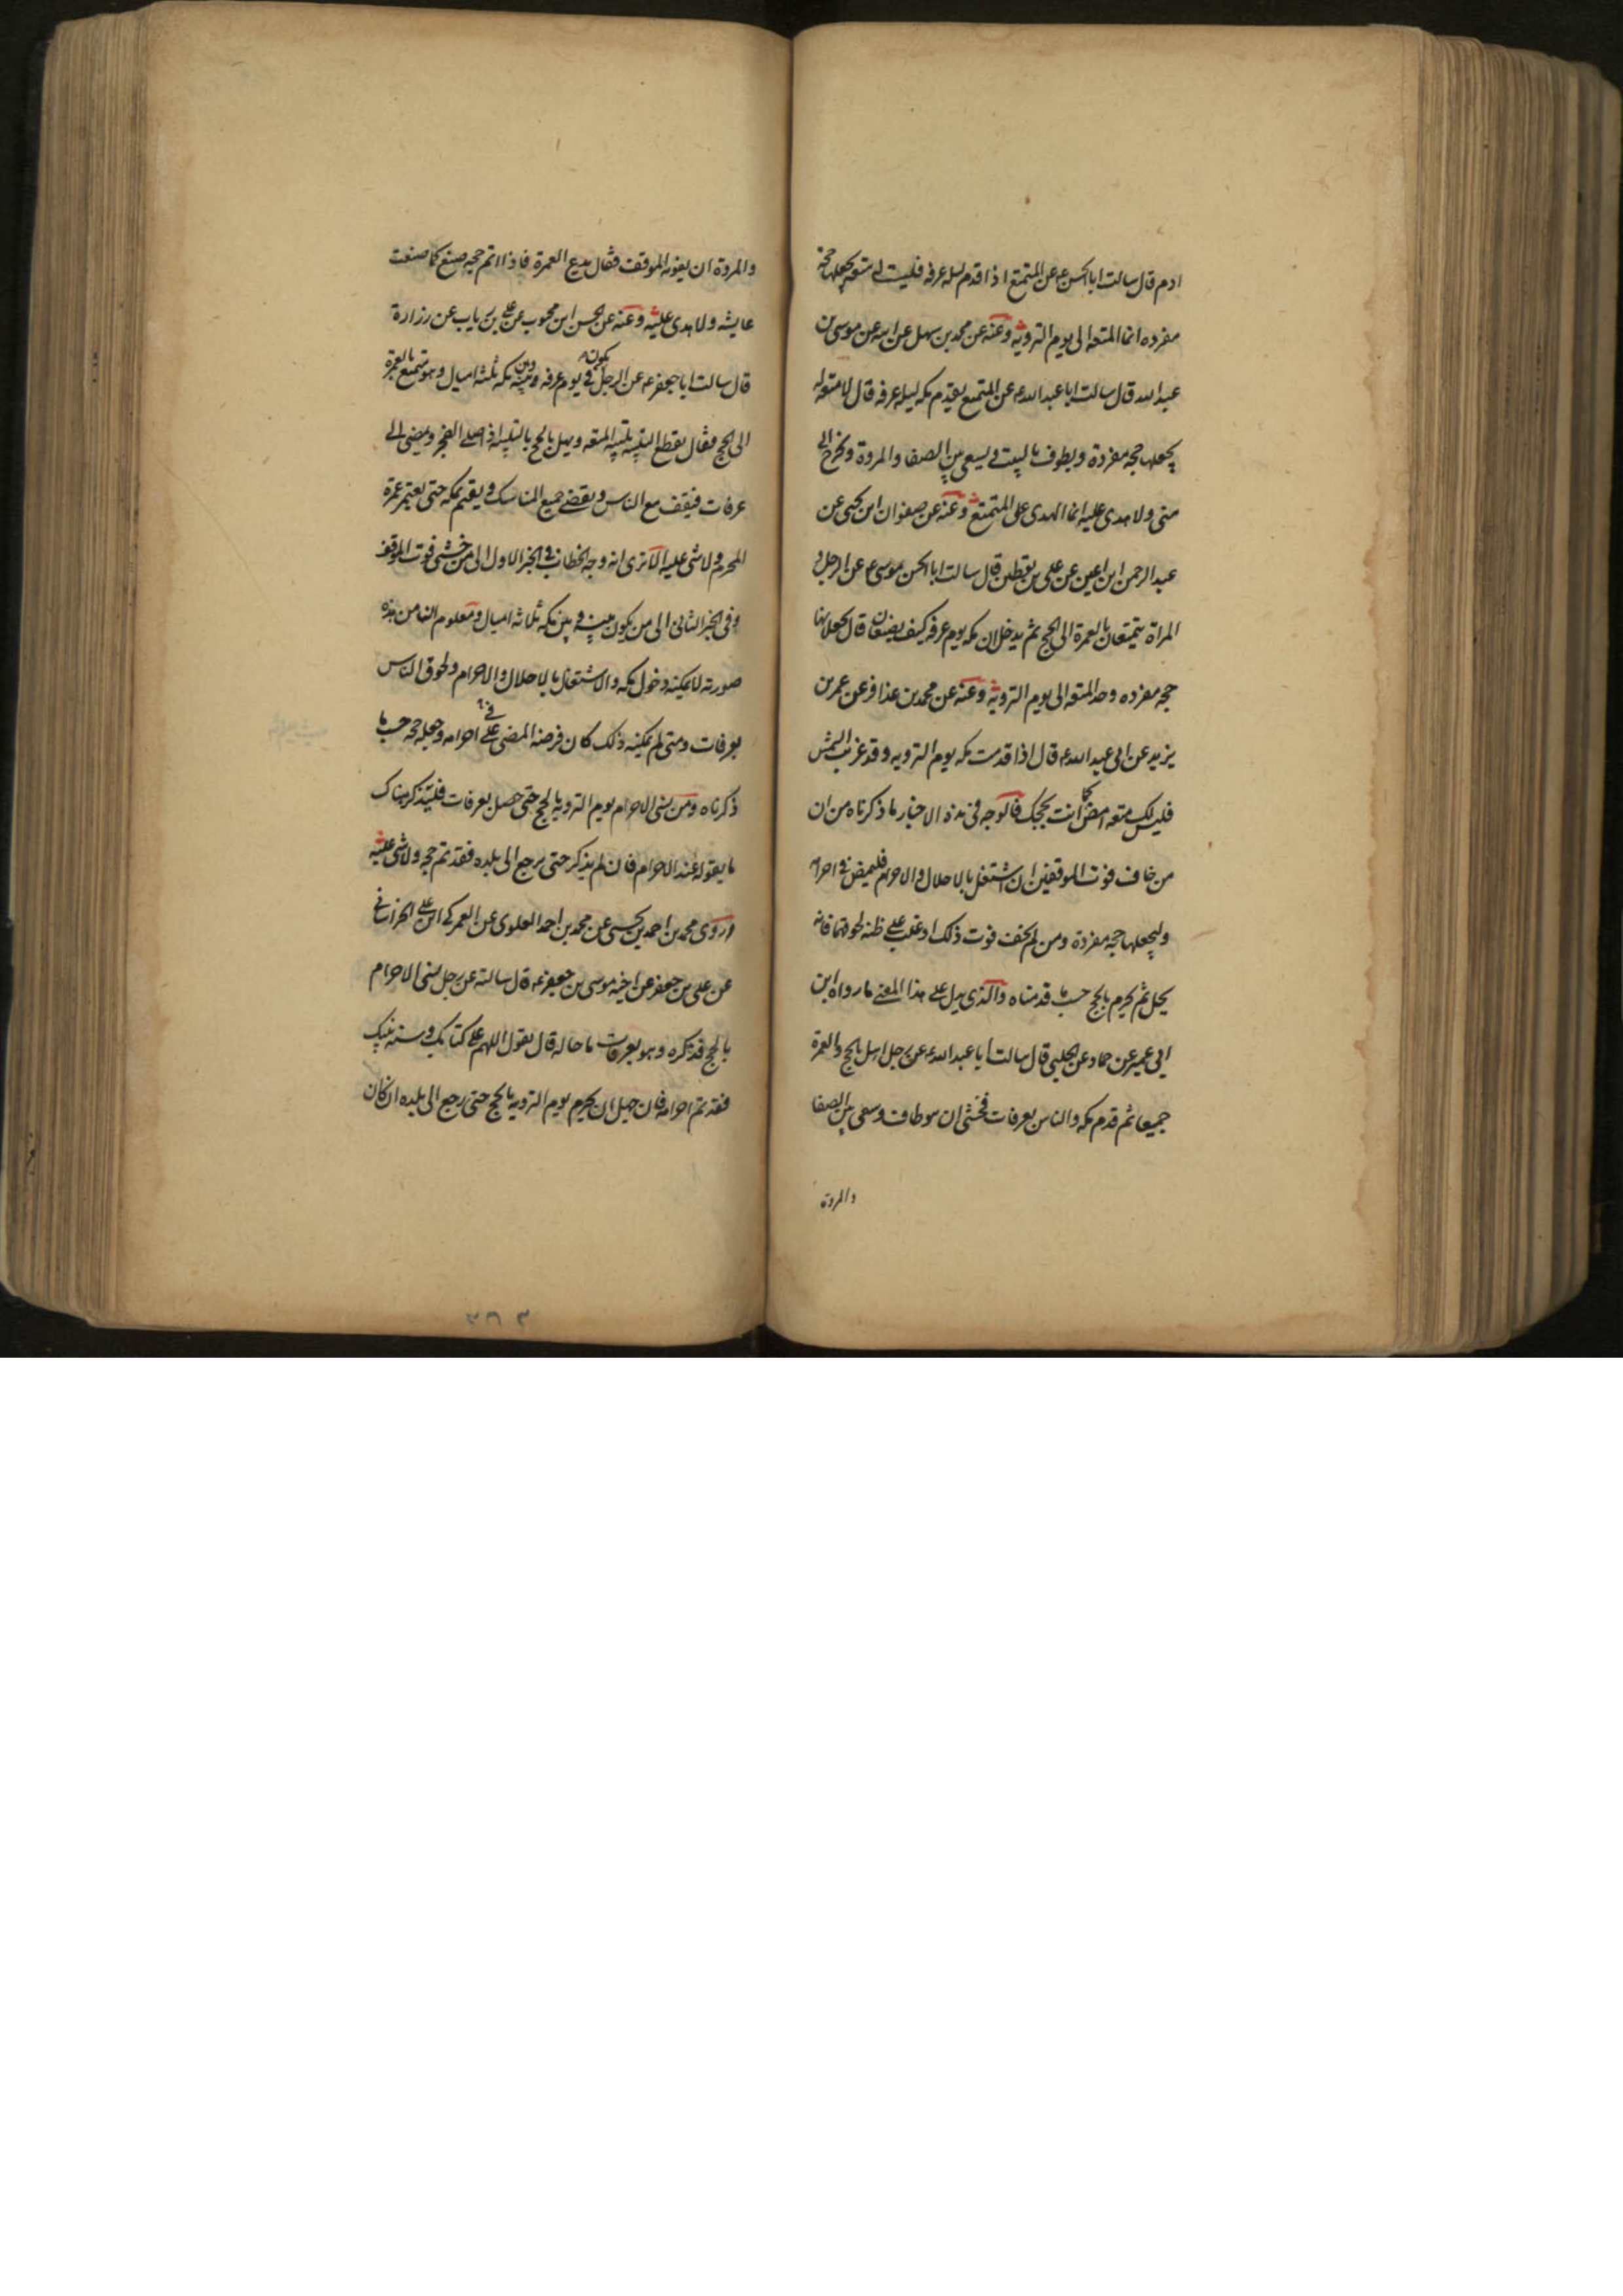 ادم قال سالت ابا الحسن ع عن المتمتع اذا قدم ليله عرفه فليست له متعه يجعلها حجة
مفرده انما المتعه الى يوم الترويه وعنه عن محمد بن سهل عن ابيه عن موسى بن
عبد الله قال سالت ابا عبد الله ع عن المتمتع يقدم مكه ليله عرفه قال لا متعه له
يجعلها حجه مفردة ويطوف بالبيت ويسعى بين الصفا والمروة ويخرج الى
منى ولا هدى عليه انما الهدى على المتمتع وعنه عن صفوان ابن يحيى عن
عبد الرحمن ابن اعين عن على بن يقطين قال سالت ابا الحسن موسى ع عن الرجل و
المراة يتمتعان بالعمرة الى الحج ثم يدخلان مكه يوم عرفه كيف يصنعان قال يجعلانها
حجه مفرده وحد المتعه الى يوم الترويه وعنه عن محمد بن عذافر عن عمر بن
يزيد عن ابى عبد الله ع قال اذا قدمت مكه يوم الترويه وقد غربت الشمس
فليس لك متعه امض كما انت بحجك فالوجه فى هذه الاخبار ما ذكرناه من ان
من خاف فوت الموقفين ان اشتغل بالاحلال والاحرام فليمض فى احرامه
وليجعلها حجه مفردة ومن لم يخف فوت ذلك او غلب على ظنه لحوقهما فانه
يحل ثم يحرم بالحج حسب ما قدمناه والذى يدل على هذا المعنى ما رواه ابن
ابى عمير عن حماد عن الحلبى قال سالت ابا عبد الله ع عن رجل اهل بالحج والعمرة
جميعا ثم قدم مكه والناس بعرفات فخشى ان هو طاف وسعى بين الصفا
والمروة
والمروة ان يفوته الموقف فقال يدع العمرة فاذا اتم حجه صنع كما صنعت
عايشه ولا هدى عليه وعنه عن الحسن ابن محبوب عن على بن رياب عن زرارة
قال سالت ابا جعفر ع عن الرجل يكون فى يوم عرفه وبينه وبين مكه ثلثه اميال وهو متمتع بالعمرة
الى الحج فقال يقطع التلبيه تلبيه المتعه ويهل بالحج بالتلبيه اذا صلى الفجر ويمضى الى
عرفات فيقف مع الناس ويقضى جميع المناسك ويقيم بمكه حتى يعتمر عمرة
المحرم ولا شى عليه الا ترى انه وجه الخطاب فى الخبر الاول الى من خشى فوت الموقف
وفى الخبر الثانى الى من يكون بينه وبين مكه ثلاثه اميال ومعلوم لنا من هذه
صورته لا يمكنه دخول مكه والاشتغال بالاحلال والاحرام ولحوق الناس
بعرفات ومتى لم يمكنه ذلك كان فرضه المضى على احرامه وجعله حجه حسب ما
ذكرناه ومن نسى الاحرام يوم الترويه بالحج حتى حصل بعرفات فليتذكر هناك
ما يقوله عند الاحرام فان لم يذكر حتى يرجع الى بلده فقد تم حجه ولا شى عليه
روى محمد بن احمد بن يحيى عن محمد بن احمد العلوى عن العمركى ابن على الخراسانى
عن على بن جعفر عن اخيه موسى بن جعفر ع قال سالته عن رجل نسى الاحرام
بالحج فذكره وهو بعرفات ما حاله قال يقول اللهم على كتابك وسنه نبيك
فقد تم احرامه فان جهل ان يحرم يوم الترويه بالحج حتى رجع الى بلده ان كان
٣٦٣